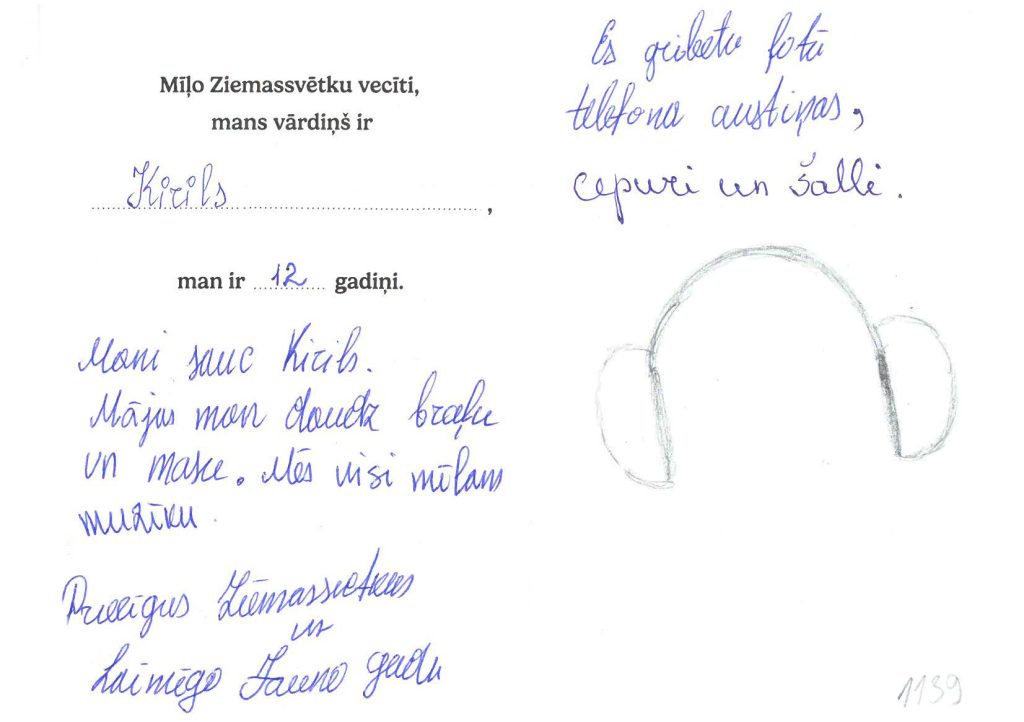 Mīļo Ziemassvētku vecīti,
mans vārdiņš ir
Kirils,
man ir 12 gadiņi.
Mani sauc Kirils.
Mājas man daudz braļu
un masu. Mēs visi mīlam
muzīku.
Priecīgus Ziēmassvetkus
un
Laimīgo Jauno gadu
Es gribetu fotū
telefona austiņas,
cepuri un šalli.
1139